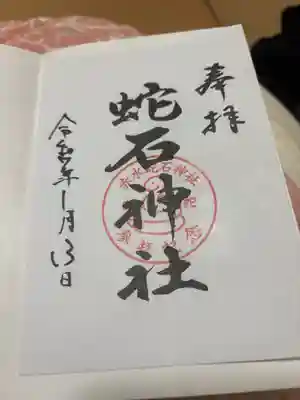 奉拝
蛇石神社
赤水蛇石神社
令和六年一月13日